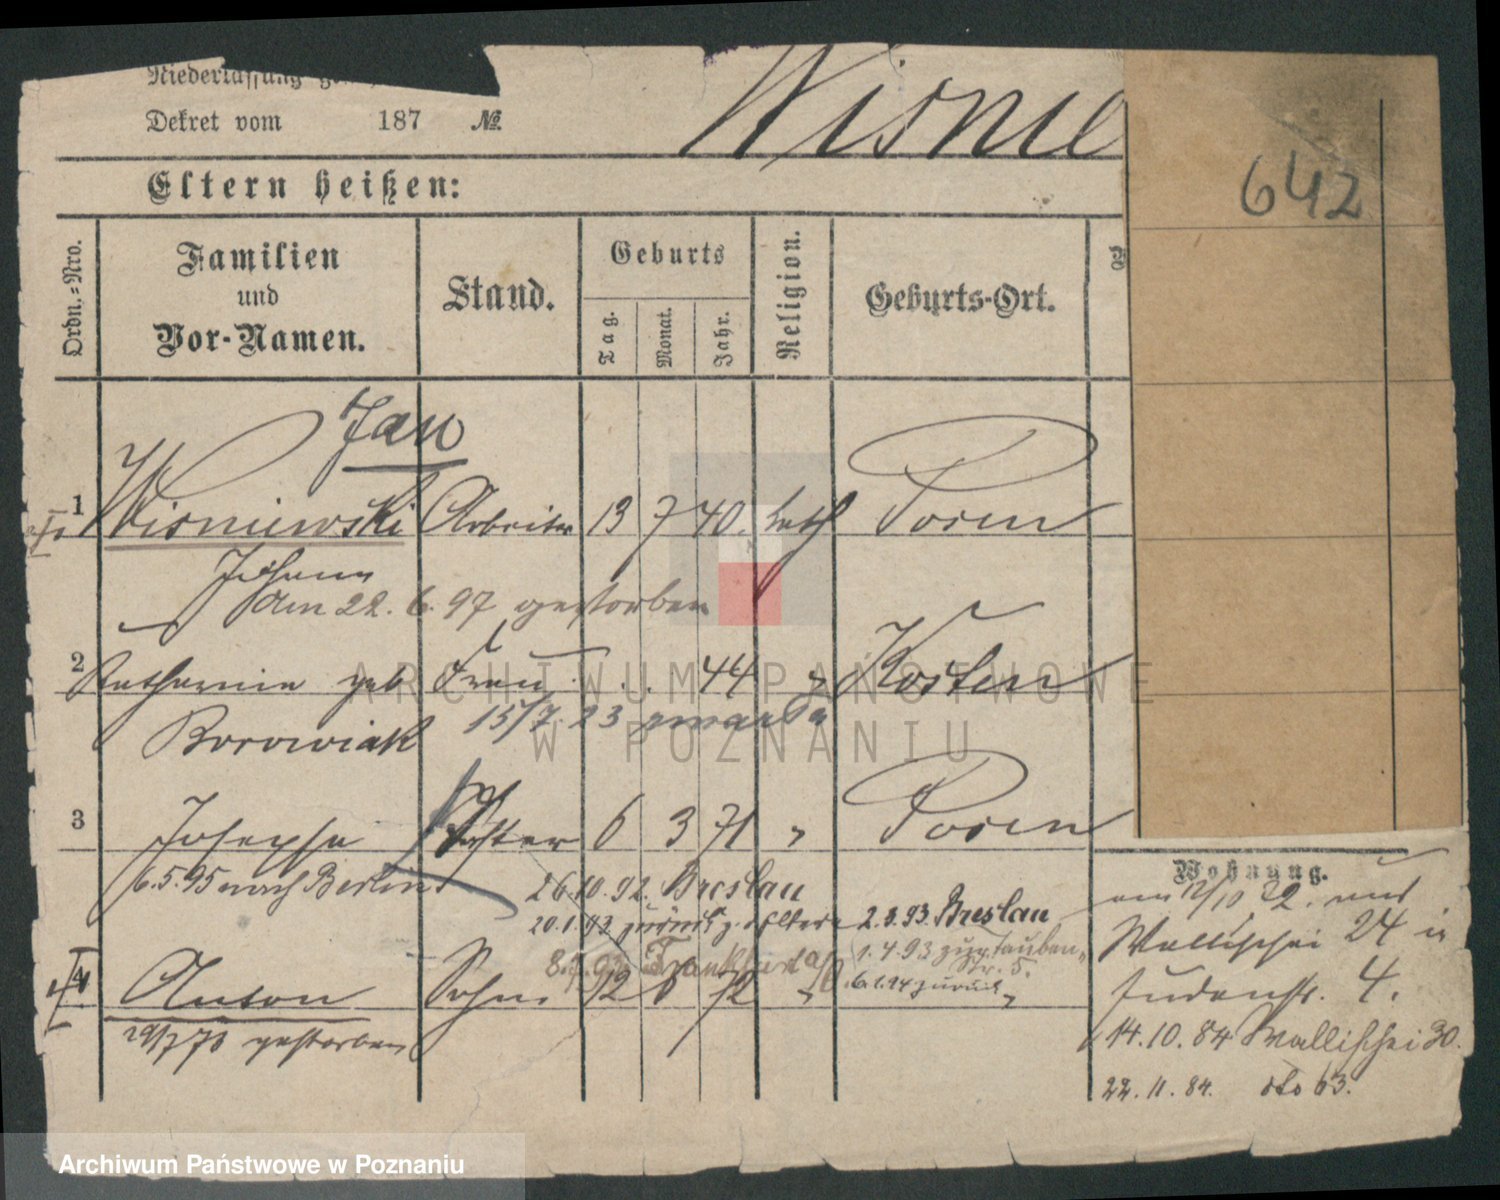 Niederlassung
Dekret vom 187 №
Wisnie
642
Eltern heißen:
Ordn.-Nro.
Familien
und
Vor-Namen.
Stand.
Geburts
Tag.
Monat.
Jahr.
Religion.
Geburts-Ort.
Jan
1 Wisniewski Arbeiter 13 7 40. kath Posen
Johann
am 22. 6. 97 gestorben
2 Katharina geb Frau 44 " Kosten
Borowiak 15/7 23 zmarła
3 Josepha Tochter 6 3 71 " Posen
6.5.95 nach Berlin
26.10.92. Breslau
20.1.93 zurück z. Eltern 2.3.93 Breslau
8. 93 Frankfurt a/O
1.4.93 zug. Tauben-
Str. 5.
6.1.94 zurück
4 Anton Sohn 12 6 72 " "
29/7 73 gestorben
Wohnung.
Wallischei 24 in
Judenstr. 4.
14.10.84 Wallischei 30.
22.11.84. dto 63.
ARCHIWUM PAŃSTWOWE
W POZNANIU
Archiwum Państwowe w Poznaniu